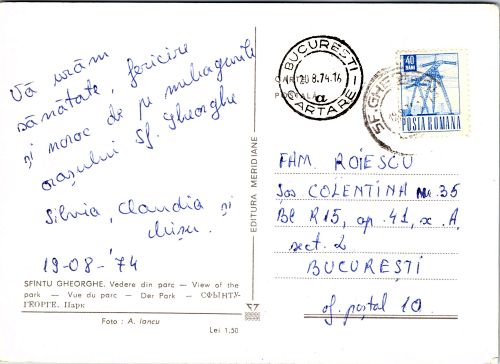 Vă urăm
sănătate, fericire
și noroc de pe meleagurile
orașului Sf. Gheorghe
Silvia, Claudia și
19-08-'74
SFÎNTU GHEORGHE. Vedere din parc — View of the
park — Vue du parc — Der Park — СФЫНТУ-
ГЕОРГЕ. Парк
Foto: A. Iancu
Lei 1,50
EDITURA MERIDIANE
BUCUREȘTI
20.8.74.16
CARTARE
SF.GHE
40
BANI
POSTA ROMANA
FAM. ROIESCU
Șos COLENTINA nr. 35
Bl R15, ap. 41, sc. A,
sect. 2
BUCUREȘTI
of. poștal 10